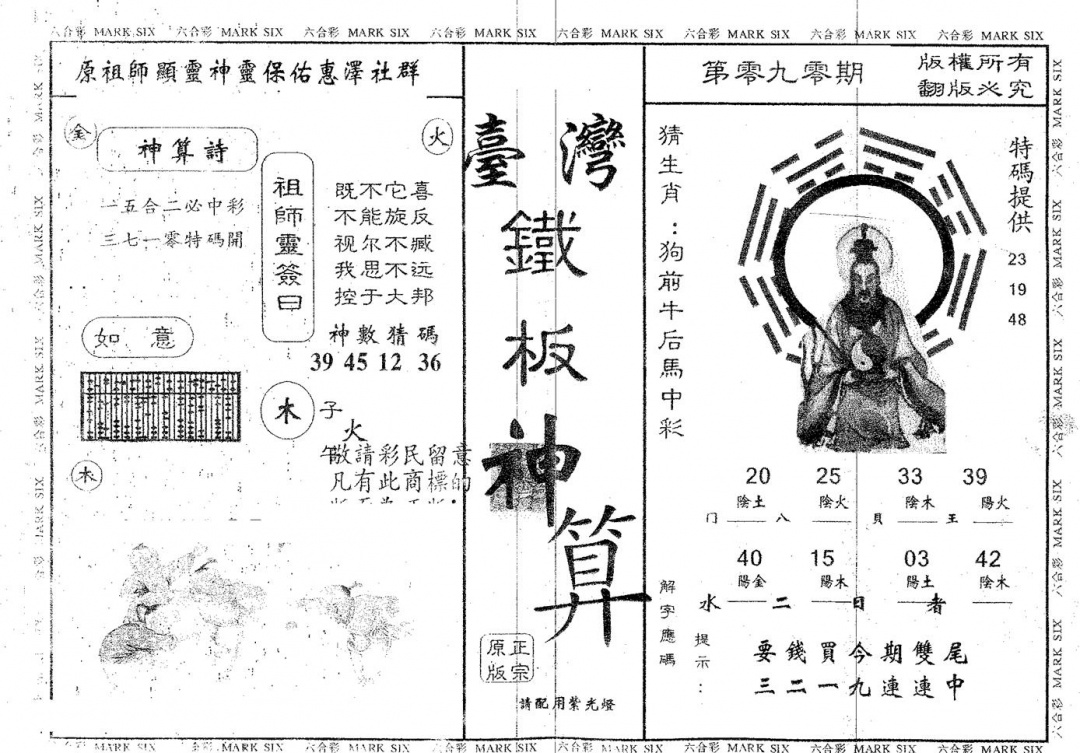 六合彩 MARK SIX 六合彩 MARK SIX 六合彩 MARK SIX 六合彩 MARK SIX 六合彩 MARK SIX 六合彩 MARK SIX 六合彩 MARK SIX 六合彩 MARK SIX
原祖師顯靈神靈保佑惠澤社群
金
火
神算詩
一五合二必中彩
三七一零特碼開
祖師靈簽曰
既不它喜
不能旋反
视尔不臧
我思不远
控于大邦
神數猜碼
39 45 12 36
如意
木
子
火
午
敬請彩民留意
凡有此商標的
木
臺灣
鐵板神算
正宗
原版
請配用紫光燈
第零九零期
版權所有
翻版必究
猜生肖:狗前牛后馬中彩
特碼提供
23
19
48
20 25 33 39
陰土 陰火 陰木 陽火
门 八 貝 王
40 15 03 42
陽金 陽木 陽土 陰木
水 二 日 者
解字應碼
提示:
要錢買今期雙尾
三二一九連連中
六合彩 MARK SIX 六合彩 MARK SIX 六合彩 MARK SIX 六合彩 MARK SIX 六合彩 MARK SIX 六合彩 MARK SIX 六合彩 MARK SIX 六合彩 MARK SIX